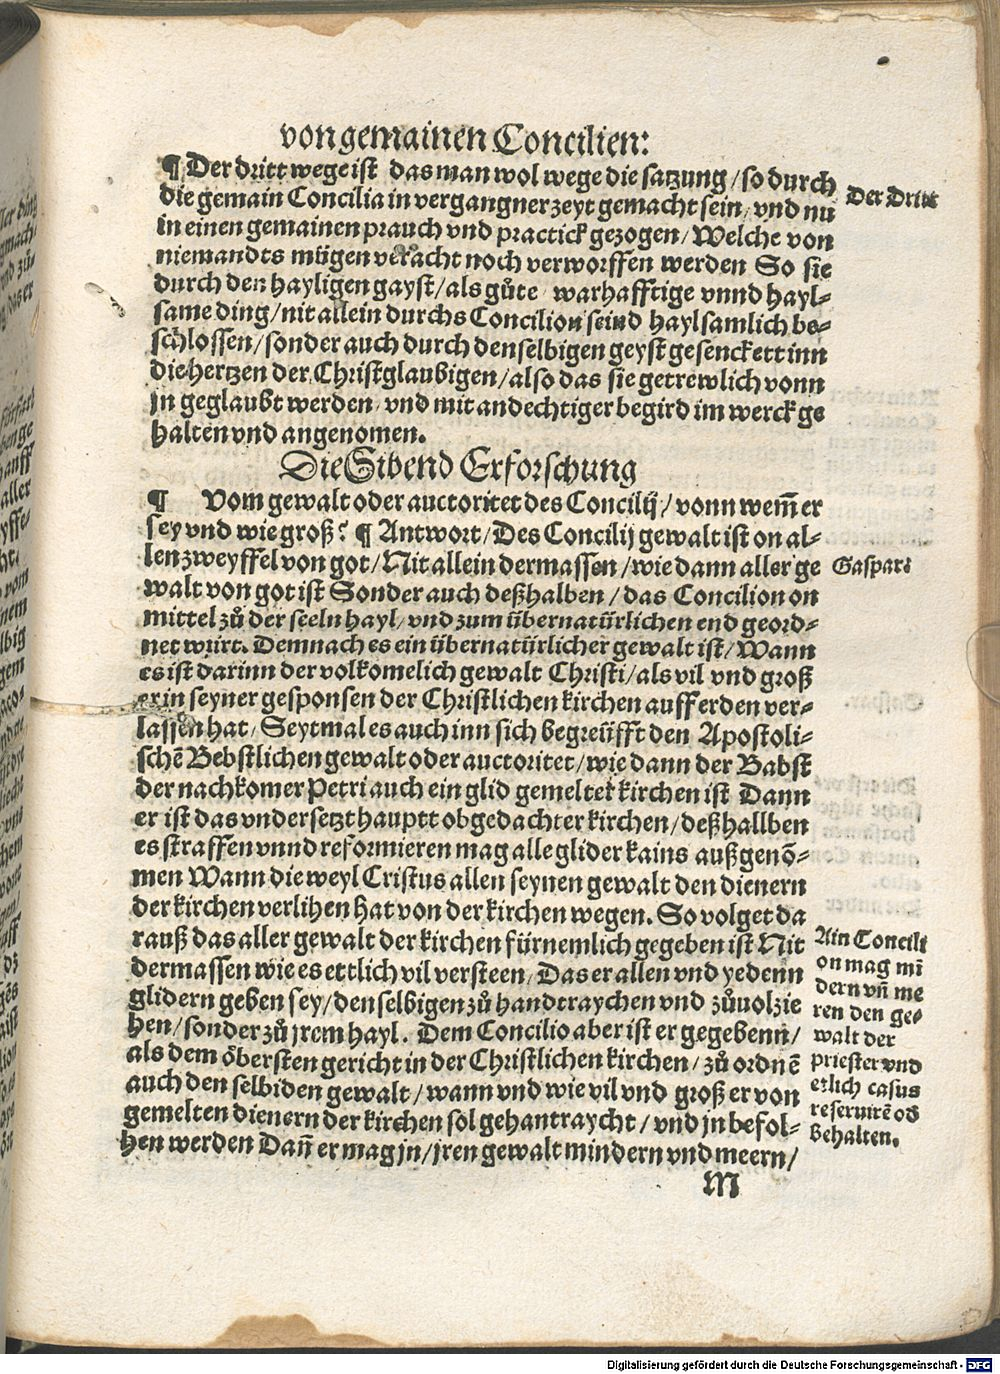 von gemainen Concilien:
¶ Der dritt wege ist das man wol wege die satzung / so durch
Der Dritt
die gemain Concilia in vergangner zeyt gemacht sein / vnd nu
in einen gemainen prauch vnd practick gezogen / Welche von
niemandts mügen veracht noch verworffen werden So sie
durch den hayligen gayst / als gůte warhafftige vnnd hayl-
same ding / nit allein durchs Concilion seind haylsamlich be-
schlossen / sonder auch durch denselbigen geyst gesenckett inn
die hertzen der Christglaubigen / also das sie getrewlich vonn
jn geglaubt werden / vnd mit andechtiger begird im werck ge
halten vnd angenomen.
Die Sibend Erforschung
¶ Vom gewalt oder auctoritet des Concilij / vonn wem̃ er
sey vnd wie groß? ¶ Antwort / Des Concilij gewalt ist on al-
len zweyffel von got / Nit allein dermassen / wie dann aller ge
Gaspar:
walt von got ist Sonder auch deßhalben / das Concilion on
mittel zů der seeln hayl / vnd zum übernatürlichen end geord-
net wirt. Demnach es ein übernatürlicher gewalt ist / Wann
es ist darinn der volkomelich gewalt Christi / als vil vnd groß
er in seyner gesponsen der Christlichen kirchen auff erden ver-
lassen hat / Seytmal es auch inn sich begreüfft den Apostoli-
schẽ Bebstlichen gewalt oder auctoritet / wie dann der Babst
der nachkomer Petri auch ein glid gemelter kirchen ist Dann
er ist das vndersetzt hauptt obgedachter kirchen / deßhallben
es straffen vnnd reformieren mag alle glider kains außgenõ-
men Wann die weyl Cristus allen seynen gewalt den dienern
der kirchen verlihen hat von der kirchen wegen. So volget da
rauß das aller gewalt der kirchen fürnemlich gegeben ist Nit
dermassen wie es ettlich vil versteen / Das er allen vnd yedenn
glidern geben sey / denselbigen zů handtraychen vnd zůuolzie
hen / sonder zů jrem hayl. Dem Concilio aber ist er gegebenn /
als dem öbersten gericht in der Christlichen kirchen / zů ordnẽ
auch den selbiden gewalt / wann vnd wie vil vnd groß er von
gemelten dienern der kirchen sol gehantraycht / vnd jn befol-
hen werden Dañ er mag jn / jren gewalt mindern vnd meern /
Ain Concili
on mag mĩ
dern vñ me
ren den ge-
walt der
priester vnd
etlich casus
reseruirẽ od
Behalten.
M
Digitalisierung gefördert durch die Deutsche Forschungsgemeinschaft - DFG